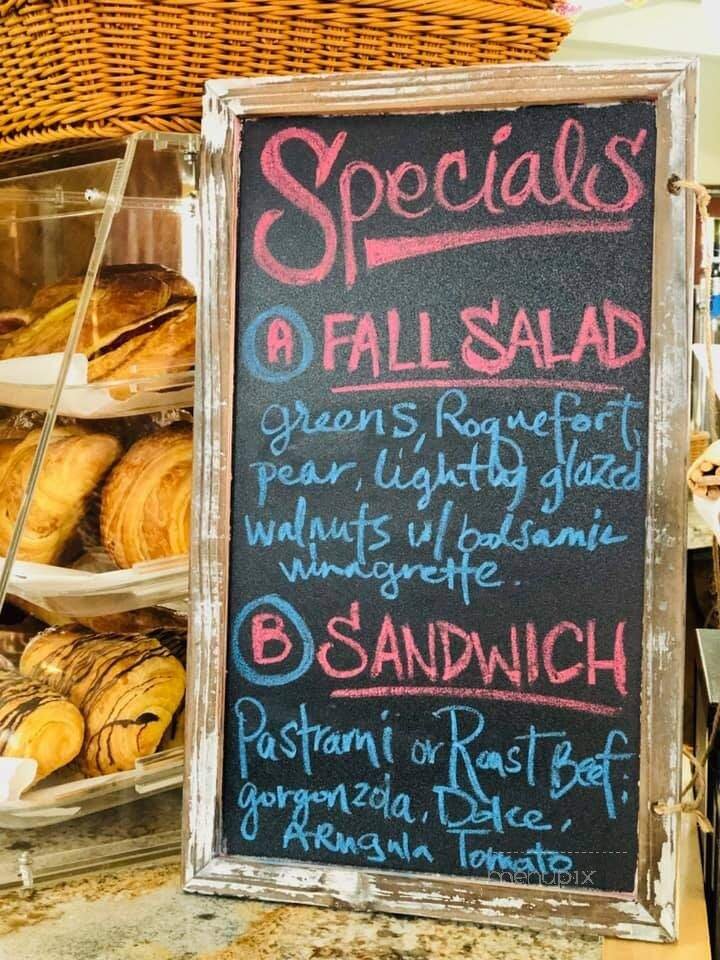 Specials
A FALL SALAD
greens, Roquefort,
pear, lightly glazed
walnuts w/ balsamic
vinagrette.
B SANDWICH
Pastrami or Roast Beef:
gorgonzola, Dolce,
ARugula Tomato
menupix